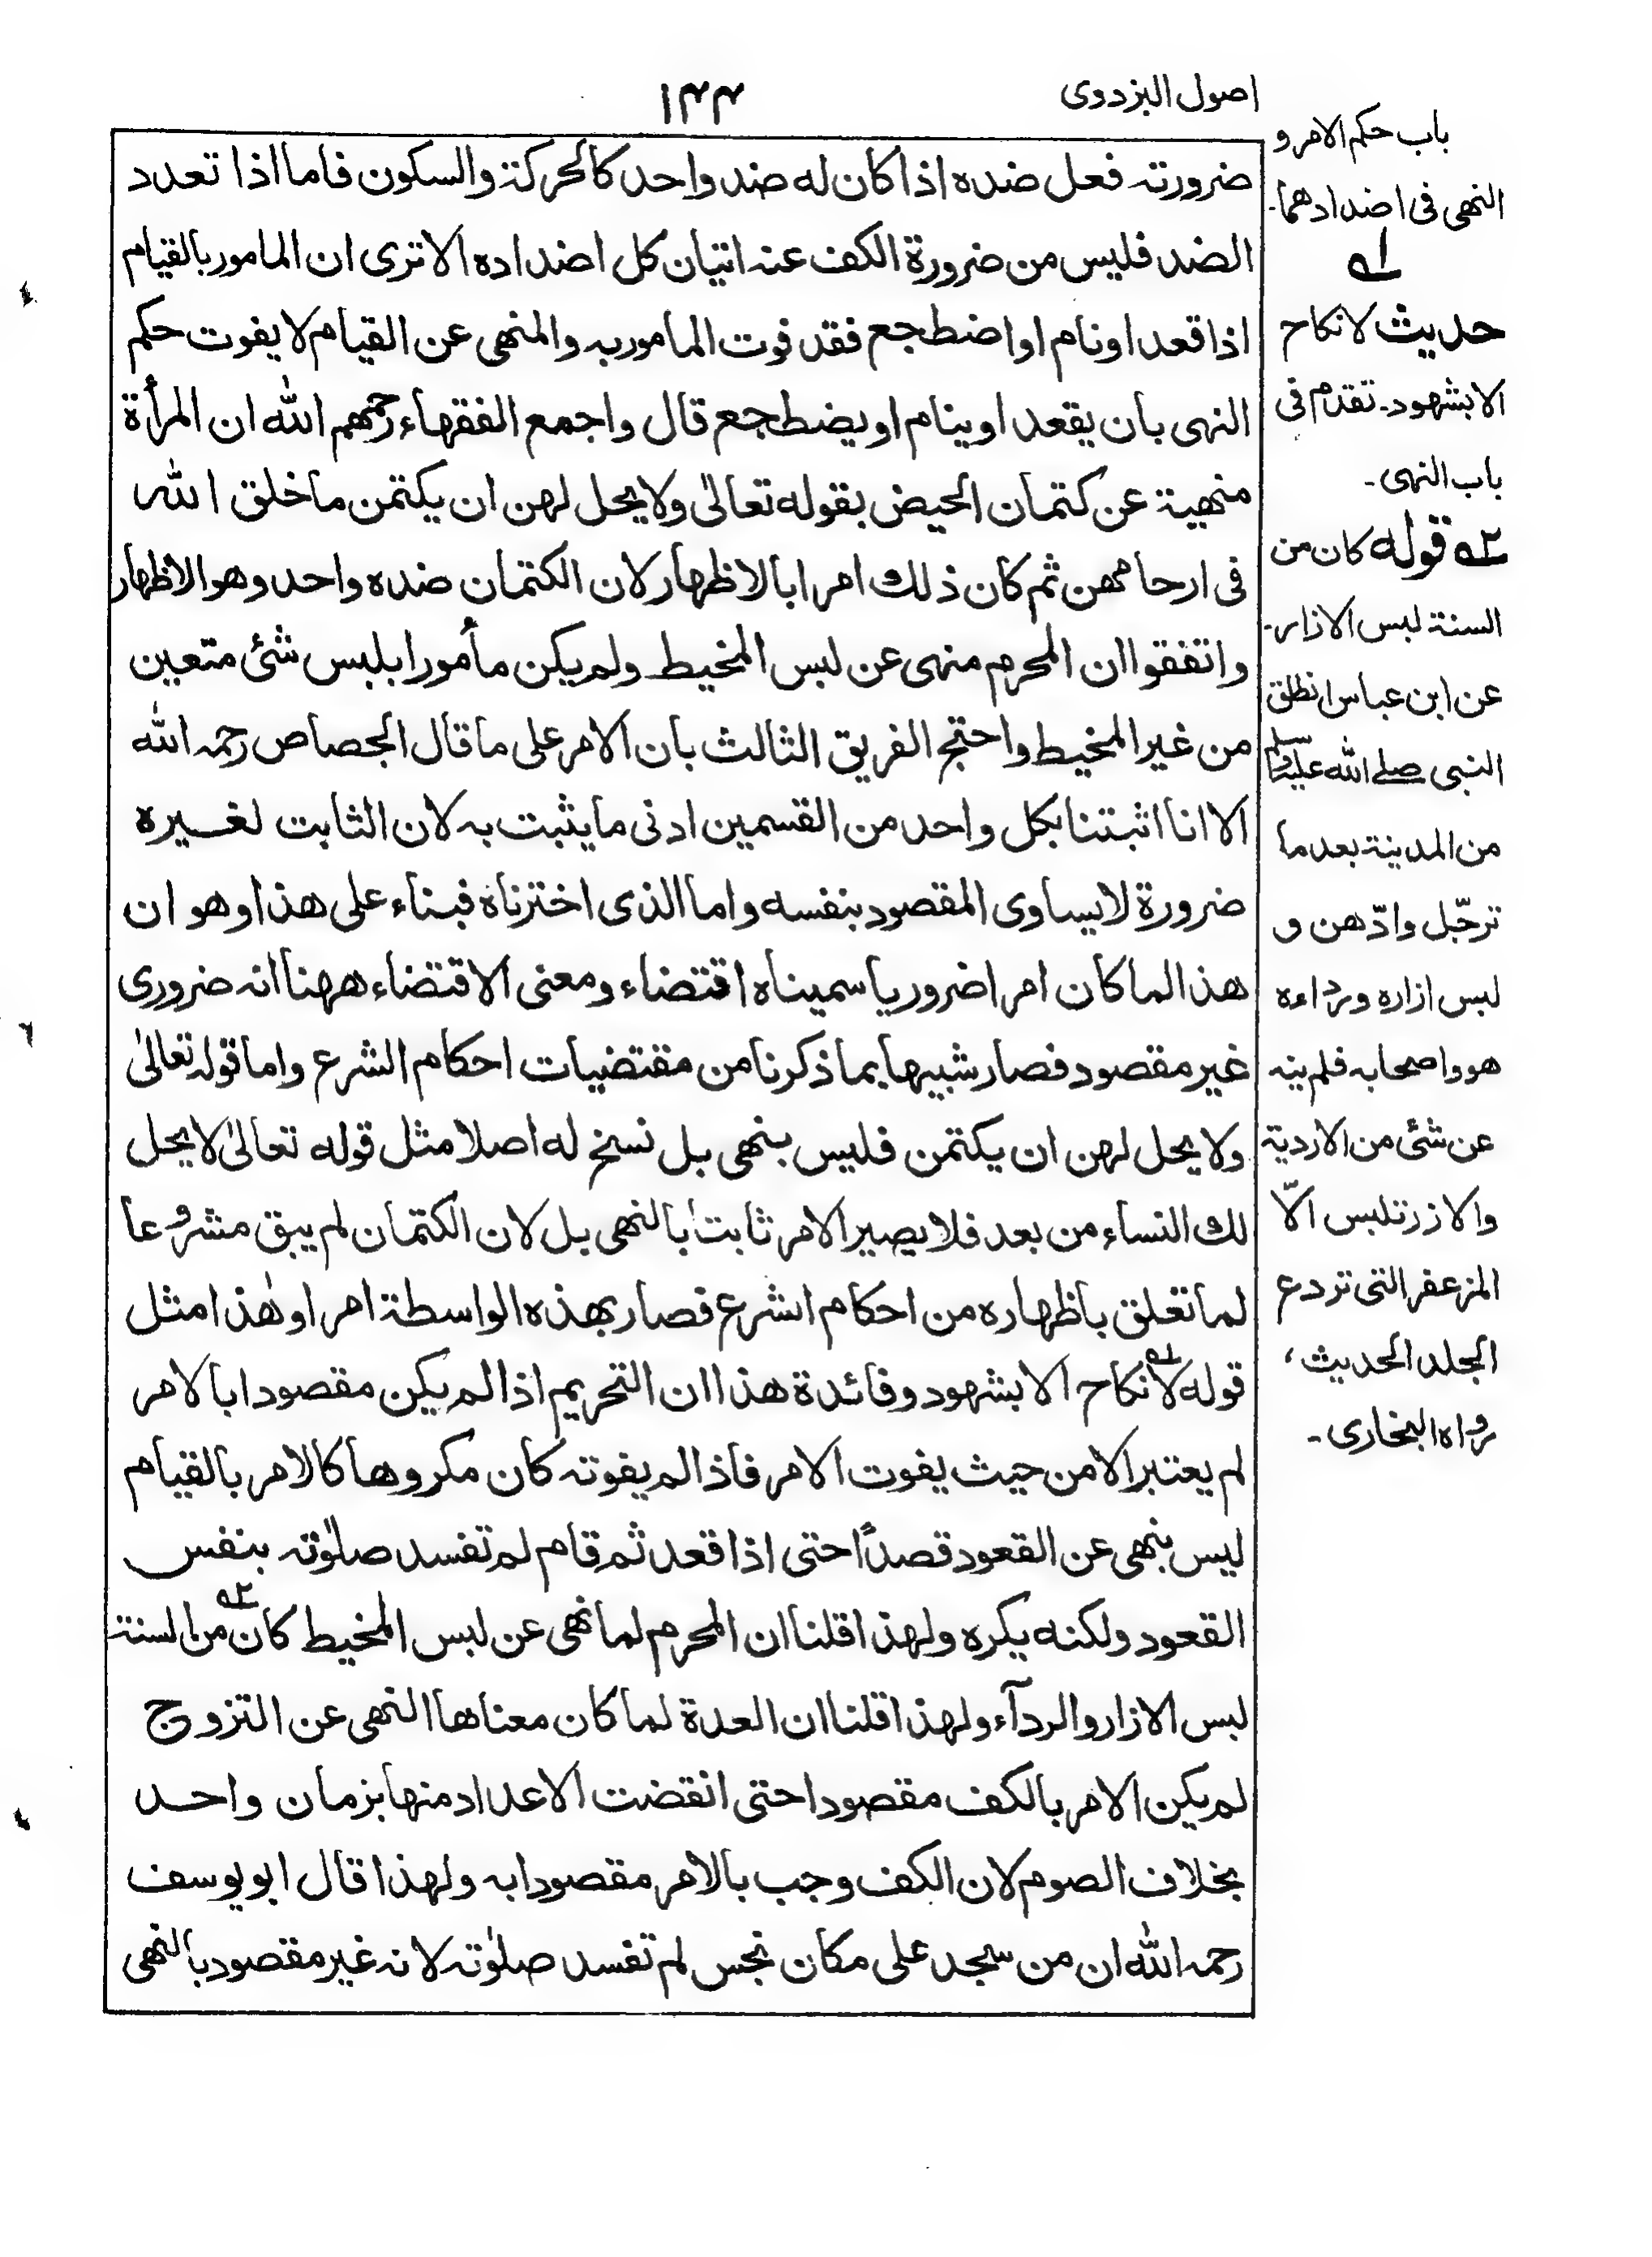 اصول البزدوى
١٤٤
ضرورته فعل ضده اذا كان له ضد واحد كالحركة والسكون فاما اذا تعدد
الضد فليس من ضرورة الكف عنه اتيان كل اضداده الا ترى ان المامور بالقيام
اذا قعد او نام او اضطجع فقد فوت المامور به والمنهى عن القيام لا يفوت حكم
النهى بان يقعد او ينام او يضطجع قال واجمع الفقهاء رحمهم الله ان المرأة
منهية عن كتمان الحيض بقوله تعالىٰ ولا يحل لهن ان يكتمن ما خلق الله
فى ارحامهن ثم كان ذلك امرا بالاظهار لان الكتمان ضده واحد وهو الاظهار
واتفقوا ان المحرم منهى عن لبس المخيط ولم يكن مأمورا بلبس شئ متعين
من غير المخيط واحتج الفريق الثالث بان الامر على ما قال الجصاص رحمه الله
الا انا اثبتنا بكل واحد من القسمين ادنى ما يثبت به لان الثابت لغيره
ضرورة لا يساوى المقصود بنفسه واما الذى اخترناه فبناء على هذا وهو ان
هذا لما كان امرا ضروريا سميناه اقتضاء ومعنى الاقتضاء ههنا انه ضرورى
غير مقصود فصار شبيها بما ذكرنا من مقتضيات احكام الشرع واما قوله تعالىٰ
ولا يحل لهن ان يكتمن فليس بنهى بل نسخ له اصلا مثل قوله تعالىٰ لا يحل
لك النساء من بعد فلا يصير الامر ثابتا بالنهى بل لان الكتمان لم يبق مشروعا
لما تعلق باظهاره من احكام الشرع فصار بهذه الواسطة امرا وهٰذا مثل
قوله لا نكاح ١ه الا بشهود وفائدة هذا ان التحريم اذا لم يكن مقصودا بالامر
لم يعتبر الا من حيث يفوت الامر فاذا لم يفوته كان مكروها كالامر بالقيام
ليس بنهى عن القعود قصداً حتى اذا قعد ثم قام لم تفسد صلوٰته بنفس
القعود ولكنه يكره ولهذا قلنا ان المحرم لما نهى عن لبس المخيط كان ٢ه من السنة
لبس الازار والرداء ولهذا قلنا ان العدة لما كان معناها النهى عن التزوج
لم يكن الامر بالكف مقصودا حتى انقضت الاعداد منها بزمان واحد
بخلاف الصوم لان الكف وجب بالامر مقصودا به ولهذا قال ابو يوسف
رحمه الله ان من سجد على مكان نجس لم تفسد صلوٰته لانه غير مقصود بالنهى
باب حكم الامر و
النهى فى اضدادهما-
١ه
حديث لا نكاح
الا بشهود- تقدم فى
باب النهى-
٢ه قوله كان من
السنة لبس الازار-
عن ابن عباس انطلق
النبى صلے الله عليه وسلم
من المدينة بعد ما
ترجّل وادّهن و
لبس ازاره ورداءه
هو واصحابه فلم ينه
عن شئ من الاردية
والازر تلبس الّا
المزعفر التى تردع
الجلد الحديث،
رواه البخارى-